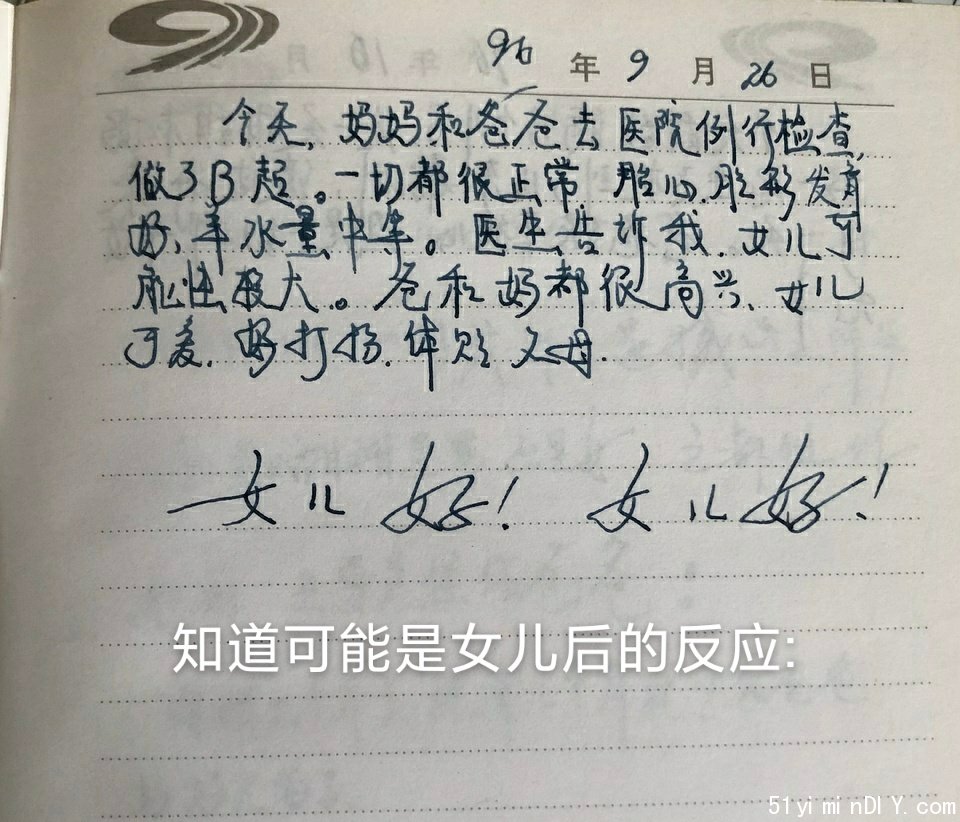 96年9月26日
今天,妈妈和爸爸去医院例行检查,
做了B超。一切都很正常,胎心,胎形发育
好,羊水量中等。医生告诉我,女儿可
能性极大。爸和妈都很高兴、女儿
可爱,好打扮,体贴父母.
女儿好! 女儿好!
知道可能是女儿后的反应:
51yiminDIY.com